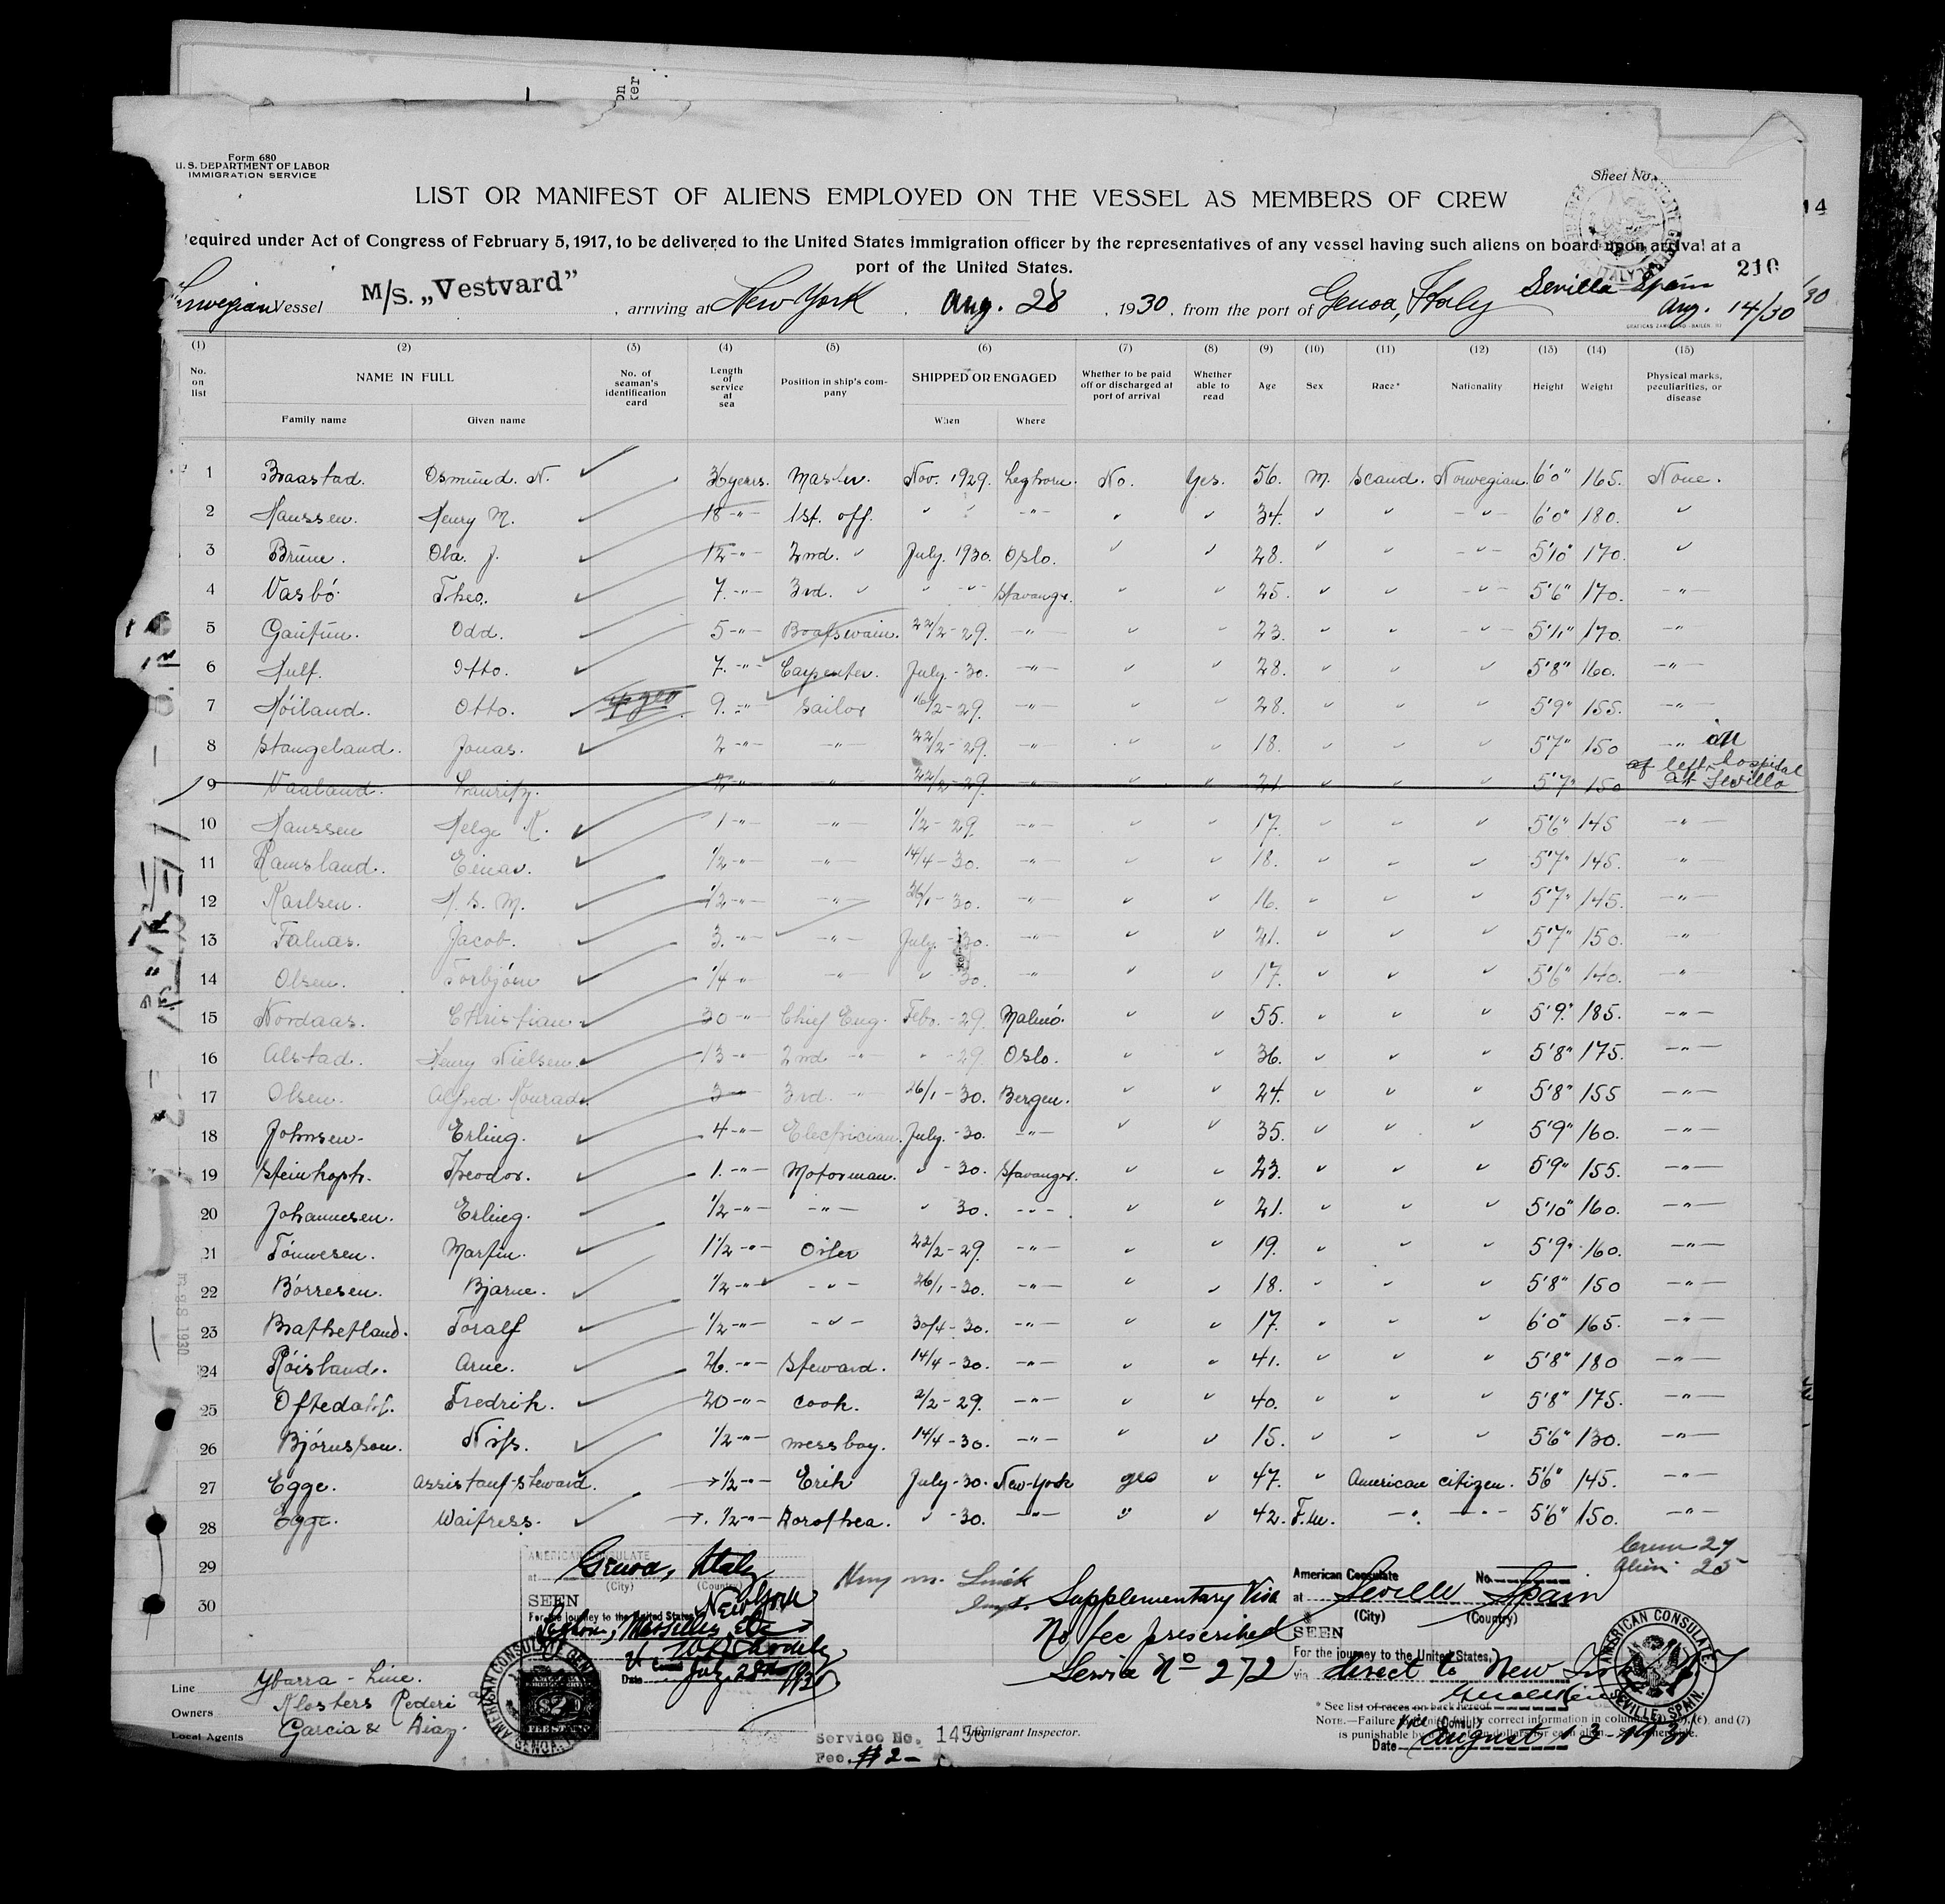 Form 680
U. S. DEPARTMENT OF LABOR
IMMIGRATION SERVICE
Sheet No.
LIST OR MANIFEST OF ALIENS EMPLOYED ON THE VESSEL AS MEMBERS OF CREW
14
equired under Act of Congress of February 5, 1917, to be delivered to the United States immigration officer by the representatives of any vessel having such aliens on board upon arrival at a
port of the United States.
210
rwegian Vessel M/S. „Vestvard” , arriving at New York , Aug. 28 , 1930, from the port of Genoa, Italy Sevilla Spain Aug. 14/30
(1) (2) (3) (4) (5) (6) (7) (8) (9) (10) (11) (12) (13) (14) (15)
No. on list NAME IN FULL No. of seaman's identification card Length of service at sea Position in ship's company SHIPPED OR ENGAGED Whether to be paid off or discharged at port of arrival Whether able to read Age Sex Race* Nationality Height Weight Physical marks, peculiarities, or disease
Family name Given name When Where
1 Braastad. Osmund. N. 36 years. Master. Nov. 1929. Leghorn. No. Yes. 56. M. Scand. Norwegian. 6'0" 165. None.
2 Hanssen. Henry M. 18 -"- 1st. off. " " -"- " " 34. " " -"- 6'0" 180. "
3 Brune. Ola. J. 12 -"- 2nd. " July. 1930. Oslo. " " 28. " " -"- 5'10" 170. "
4 Vasbó. Theo. 7. -"- 3rd. " " -"- Stavanger. " " 25. " " -"- 5'6" 170. -"-
5 Gautun. Odd. 5 -"- Boatswain. 22/2-29. -"- " " 23. " " -"- 5'11" 170. -"-
6 Hulf. Otto. 7. -"- Carpenter. July.-30. -"- " " 28. " " " 5'8" 160. -"-
7 Hóiland. Otto. 9. -"- Sailor 16/2-29. -"- " " 28. " " " 5'9" 155. -"-
8 Stangeland. Jonas. 2 -"- -"- 22/2-29. -"- " " 18. " " " 5'7" 150 -"-
in
of left hospital
9 Vaaland. Lauritz. 2 -"- -"- 22/2-29. -"- " " 21. " " " 5'7" 150 at Sevilla
10 Hanssen Helge K. 1 -"- -"- 1/2-29. -"- " " 17. " " " 5'6" 145 -"-
11 Ramsland. Einar. 1/2 -"- -"- 14/4-30. -"- " " 18. " " " 5'7" 145. -"-
12 Karlsen. H. S. M. 1/2 -"- -"- 26/1-30. -"- " " 16. " " " 5'7" 145. -"-
13 Falnas. Jacob. 3. -"- -"- July.-30. -"- " " 21. " " " 5'7" 150. -"-
14 Olsen. Torbjórn 1/4 -"- -"- " 30. -"- " " 17. " " " 5'6" 140. -"-
15 Nordaas. Christian. 30 -"- Chief Eng. Febr.-29. Malmó. " " 55. " " " 5'9" 185. -"-
16 Alstad. Henry Nielsen. 13 -"- 2nd -"- " 29. Oslo. " " 36. " " " 5'8" 175. -"-
17 Olsen. Alfred Konrad. 3 -"- 3rd. -"- 26/1-30. Bergen. " " 24. " " " 5'8" 155 -"-
18 Johnsen. Erling. 4 -"- Electrician. July.-30. -"- " " 35. " " " 5'9" 160. -"-
19 Steinkoph. Theodor. 1. -"- Motorman. " -30. Stavanger. " " 23. " " " 5'9" 155. -"-
20 Johannesen. Erling. 1/2 -"- -"- " 30. -"- " " 21. " " " 5'10" 160. -"-
21 Tónnesen. Martin. 1 1/2 -"- Oiler 22/2-29. -"- " " 19. " " " 5'9" 160. -"-
22 Bórresen. Bjarne. 1/2 -"- -"- 26/1-30. -"- " " 18. " " " 5'8" 150 -"-
23 Brathetland. Toralf 1/2 -"- -"- 30/4-30. -"- " " 17. " " " 6'0" 165. -"-
24 Róisland. Arne. 26. -"- Steward. 14/4-30. -"- " " 41. " " " 5'8" 180 -"-
25 Oftedahl. Fredrik. 20 -"- Cook. 2/2-29. -"- " " 40. " " " 5'8" 175. -"-
26 Bjórnsson. Nils. 1/2 -"- messboy. 14/4-30. -"- " " 15. " " " 5'6" 130. -"-
27 Egge. Assistant-Steward. 1/2 -"- Erik July-30. New-York yes " 47. " American citizen. 5'6" 145. -"-
28 Egge. Waitress. 1/2 -"- Dorothea. " -30. -"- " " 42. F.m. -"- -"- 5'6" 150. -"-
29
30
Crew 27
Alien 25
AMERICAN CONSULATE
at Genoa, Italy
(City) (Country)
SEEN New York
For the journey to the United States
Leghorn, Marseilles, Etc
Date July 28th 1930
Supplementary Visa
No fee prescribed
Service No 272
American Consulate No.
at Seville Spain
(City) (Country)
SEEN
For the journey to the United States,
via direct to New York
Vice Consul
Date August 13-1930
AMERICAN CONSULATE SEVILLE, SPAIN.
Line Ybarra - Line.
Owners Klosters Rederi
Local Agents Garcia & Diaz.
$2
FEE STAMP
Service No. 1436
Fee. $2-
Immigrant Inspector.
* See list of races on back hereof.